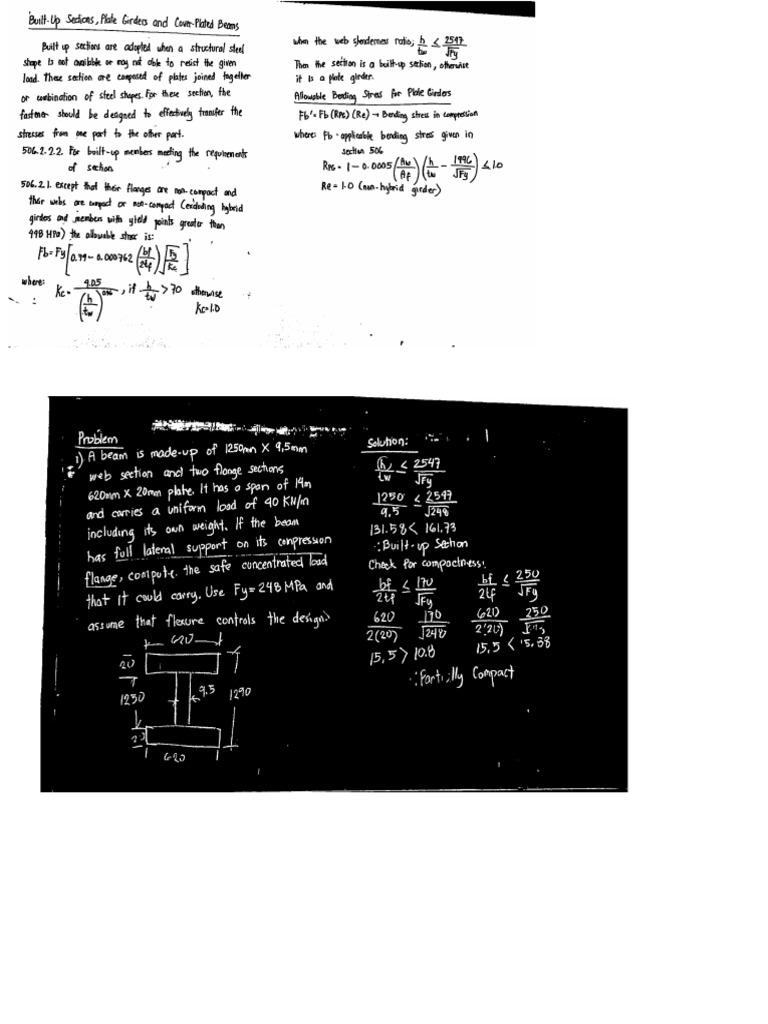 Built-Up Sections, Plate Girders and Cover-Plated Beams
Built up sections are adopted when a structural steel
shape is not available or may not able to resist the given
load. These section are composed of plates joined together
or combination of steel shapes. For these section, the
fastener should be designed to effectively transfer the
stresses from one part to the other part.
506.2.2.2. For built-up members meeting the requirements
of section
506.2.1. except that their flanges are non-compact and
their webs are compact or non-compact (excluding hybrid
girders and members with yield points greater than
448 MPa) the allowable stress is:
Fb = Fy [0.79 - 0.000762 (bf/2tf) √(Fy/Kc)]
where: Kc = 4.05/(h/tw)^0.46, if h/tw > 70 otherwise
Kc = 1.0
when the web slenderness ratio; h/tw ≤ 2547/√Fy
Then the section is a built-up section, otherwise
it is a plate girder.
Allowable Bending Stress for Plate Girders
Fb' = Fb (RPG) (Re) → Bending stress in compression
where: Fb - applicable bending stress given in
section 506
RPG = 1 - 0.0005 (Aw/Af) (h/tw - 1996/√Fy) ≤ 1.0
Re = 1.0 (non-hybrid girder)
Problem
1) A beam is made-up of 1250mm X 9.5mm
web section and two flange sections
620mm X 20mm plate. It has a span of 14m
and carries a uniform load of 40 KN/m
including its own weight. If the beam
has full lateral support on its compression
flange, compute the safe concentrated load
that it could carry. Use Fy = 248 MPa and
assume that flexure controls the design.
620
20
1250
9.5
1290
20
620
Solution:
h/tw ≤ 2547/√Fy
1250/9.5 ≤ 2547/√248
131.58 < 161.73
∴ Built-up Section
Check for compactness:
bf/2tf ≤ 170/√Fy bf/2tf ≤ 250/√Fy
620/2(20) 170/√248 620/2(20) 250
15.5 > 10.8 15.5 < 15.88
∴ Partially Compact